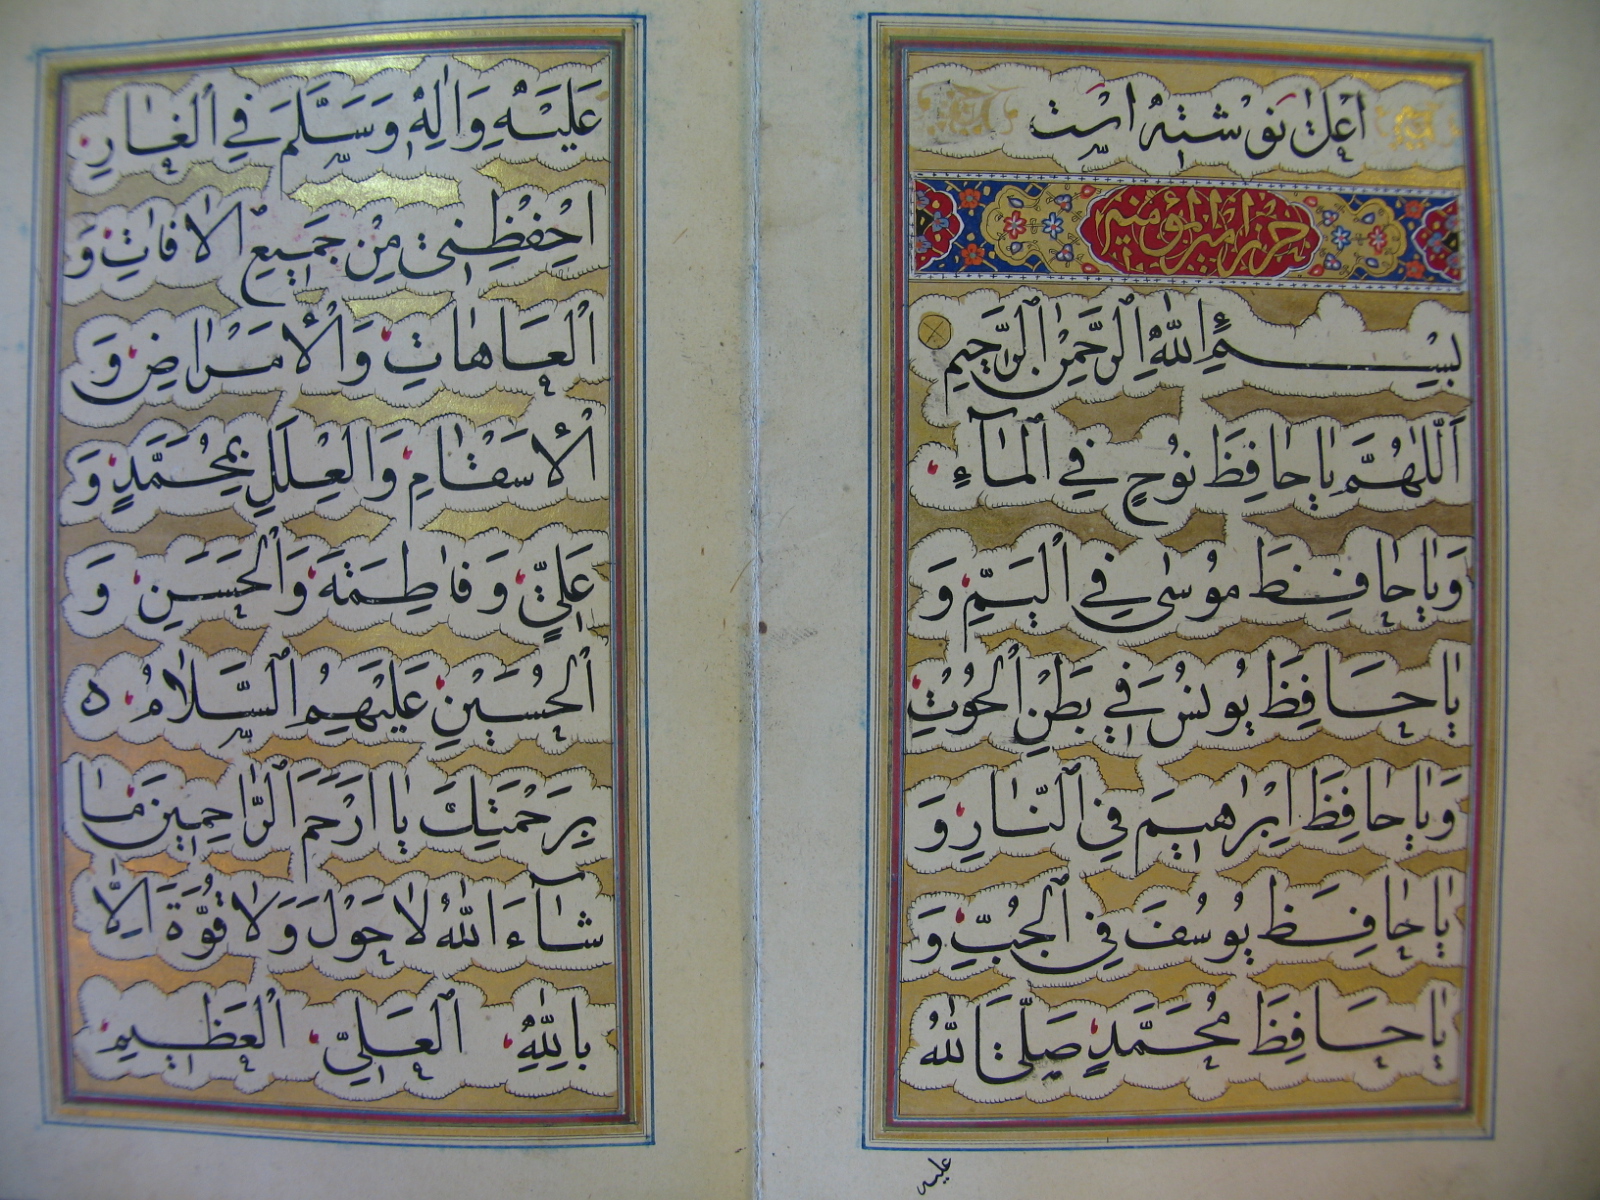 اعلی نوشته است
حرز امیرالمؤمنین
بِسْمِ اللّٰهِ الرَّحْمٰنِ الرَّحِیمِ
اَللّٰهُمَّ یٰا حٰافِظَ نُوحٍ فِی الْمٰآءِ
وَ یٰا حٰافِظَ مُوسٰی فِی الْیَمِّ وَ
یٰا حٰافِظَ یُونُسَ فِی بَطْنِ الْحُوتِ
وَ یٰا حٰافِظَ اِبْرٰهِیمَ فِی النّٰارِ وَ
یٰا حٰافِظَ یُوسُفَ فِی الْجُبِّ وَ
یٰا حٰافِظَ مُحَمَّدٍ صَلَّی اللّٰهُ
علیه
عَلَیْهِ وَ اٰلِهِ وَ سَلَّمَ فِی الْغٰارِ
احْفِظْنِی مِنْ جَمِیعِ الْاٰفٰاتِ وَ
الْعٰاهٰاتِ وَ الْأَمْرٰاضِ وَ
الْأَسْقٰامِ وَ الْعِلَلِ بِمُحَمَّدٍ وَ
عَلِیٍّ وَ فٰاطِمَةَ وَ الْحَسَنِ وَ
الْحُسَیْنِ عَلَیْهِمُ السَّلٰامُ ه
بِرَحْمَتِكَ یٰا اَرْحَمَ الرّٰاحِمِینَ مٰا
شٰآءَ اللّٰهُ لٰا حَوْلَ وَ لٰا قُوَّةَ اِلّٰا
بِاللّٰهِ الْعَلِیِّ الْعَظِیمِ